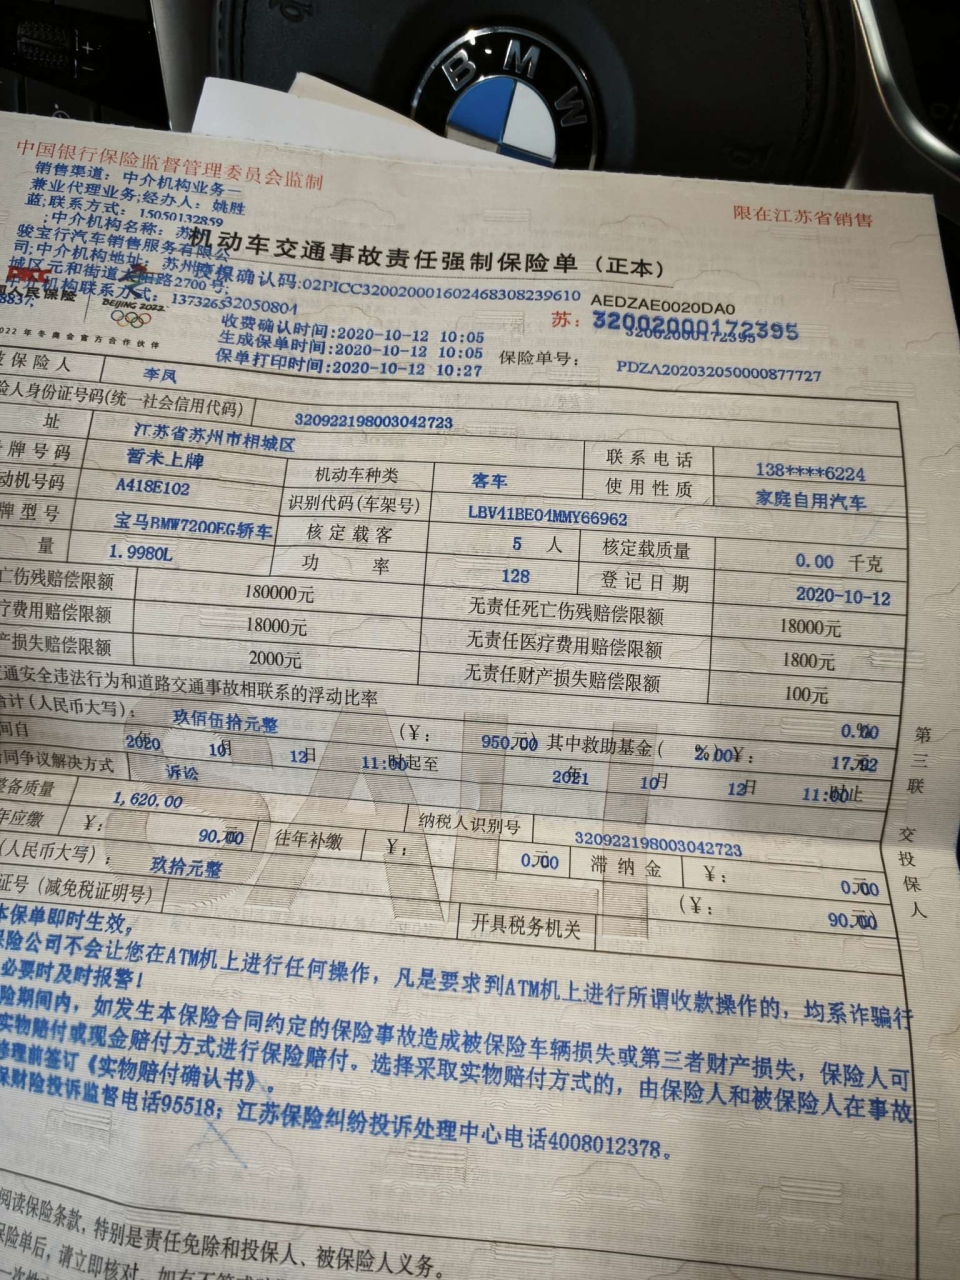 BMW
中国银行保险监督管理委员会监制
限在江苏省销售
销售渠道：中介机构业务—
兼业代理业务;经办人：姚胜
蓝;联系方式：15050132859
;中介机构名称：苏
骏宝行汽车销售服务有限公
司;中介机构地址：苏州
城区元和街道 路2700号;
机构联系方式：1373265
机动车交通事故责任强制保险单（正本）
确认码:02PICC320020001602468308239610
32050804
人民保险
BEIJING 2022
022 年冬奥会官方合作伙伴
收费确认时间:2020-10-12 10:05
生成保单时间:2020-10-12 10:05
保单打印时间:2020-10-12 10:27
AEDZAE0020DA0
苏：32002000172395
32002000172395
保险单号： PDZA202032050000877727
保险人 李凤
险人身份证号码(统一社会信用代码) 320922198003042723
址 江苏省苏州市相城区 联系电话 138****6224
牌号码 暂未上牌 机动车种类 客车 使用性质 家庭自用汽车
动机号码 A418E102 识别代码(车架号) LBV41BE04MMY66962
牌型号 宝马BMW7200EG轿车 核定载客 5 人 核定载质量 0.00 千克
量 1.9980L 功率 128 登记日期 2020-10-12
亡伤残赔偿限额 180000元 无责任死亡伤残赔偿限额 18000元
疗费用赔偿限额 18000元 无责任医疗费用赔偿限额 1800元
产损失赔偿限额 2000元 无责任财产损失赔偿限额 100元
通安全违法行为和道路交通事故相联系的浮动比率 0.00 %
合计(人民币大写)： 玖佰伍拾元整 (￥： 950.00 元) 其中救助基金( 2.00 %)￥： 17.92 元
间自 2020 年 10 月 12 日 11:00 时起至 2021 年 10 月 12 日 11:00 时止
同争议解决方式 诉讼
整备质量 1,620.00 纳税人识别号 320922198003042723
年应缴 ￥： 90.00 元 往年补缴 ￥： 0.00 元 滞纳金 ￥： 0.00 元
(人民币大写)： 玖拾元整 (￥： 90.00 元)
证号（减免税证明号） 开具税务机关
第三联 交投保人
本保单即时生效。
保险公司不会让您在ATM机上进行任何操作，凡是要求到ATM机上进行所谓收款操作的，均系诈骗行
必要时及时报警！
险期间内，如发生本保险合同约定的保险事故造成被保险车辆损失或第三者财产损失，保险人可
实物赔付或现金赔付方式进行保险赔付。选择采取实物赔付方式的，由保险人和被保险人在事故
修理前签订《实物赔付确认书》。
保财险投诉监督电话95518；江苏保险纠纷投诉处理中心电话4008012378。
阅读保险条款，特别是责任免除和投保人、被保险人义务。
保险单后，请立即核对，如有不符或